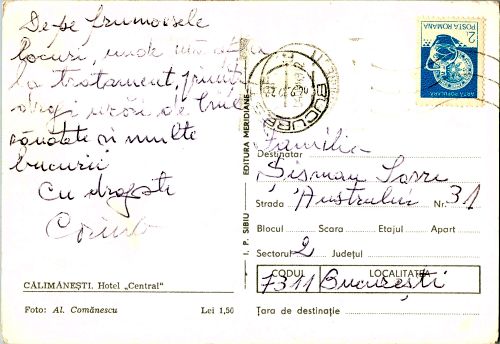 De pe frumoasele
locuri, unde mă aflu
la tratament, primiți
dragi urări de bine
sănătate și multe
bucurii
Cu dragoste
CĂLIMĂNEȘTI. Hotel „Central”
Foto: Al. Comănescu Lei 1,50
I. P. SIBIU EDITURA MERIDIANE
2L POSTA ROMANA
ARTA POPULARA
BUCUREȘTI
Familia
Destinatar Șisman
Strada Austrului Nr. 31
Blocul Scara Etajul Apart
Sectorul 2 Județul
CODUL LOCALITATEA
7311 București
Țara de destinație